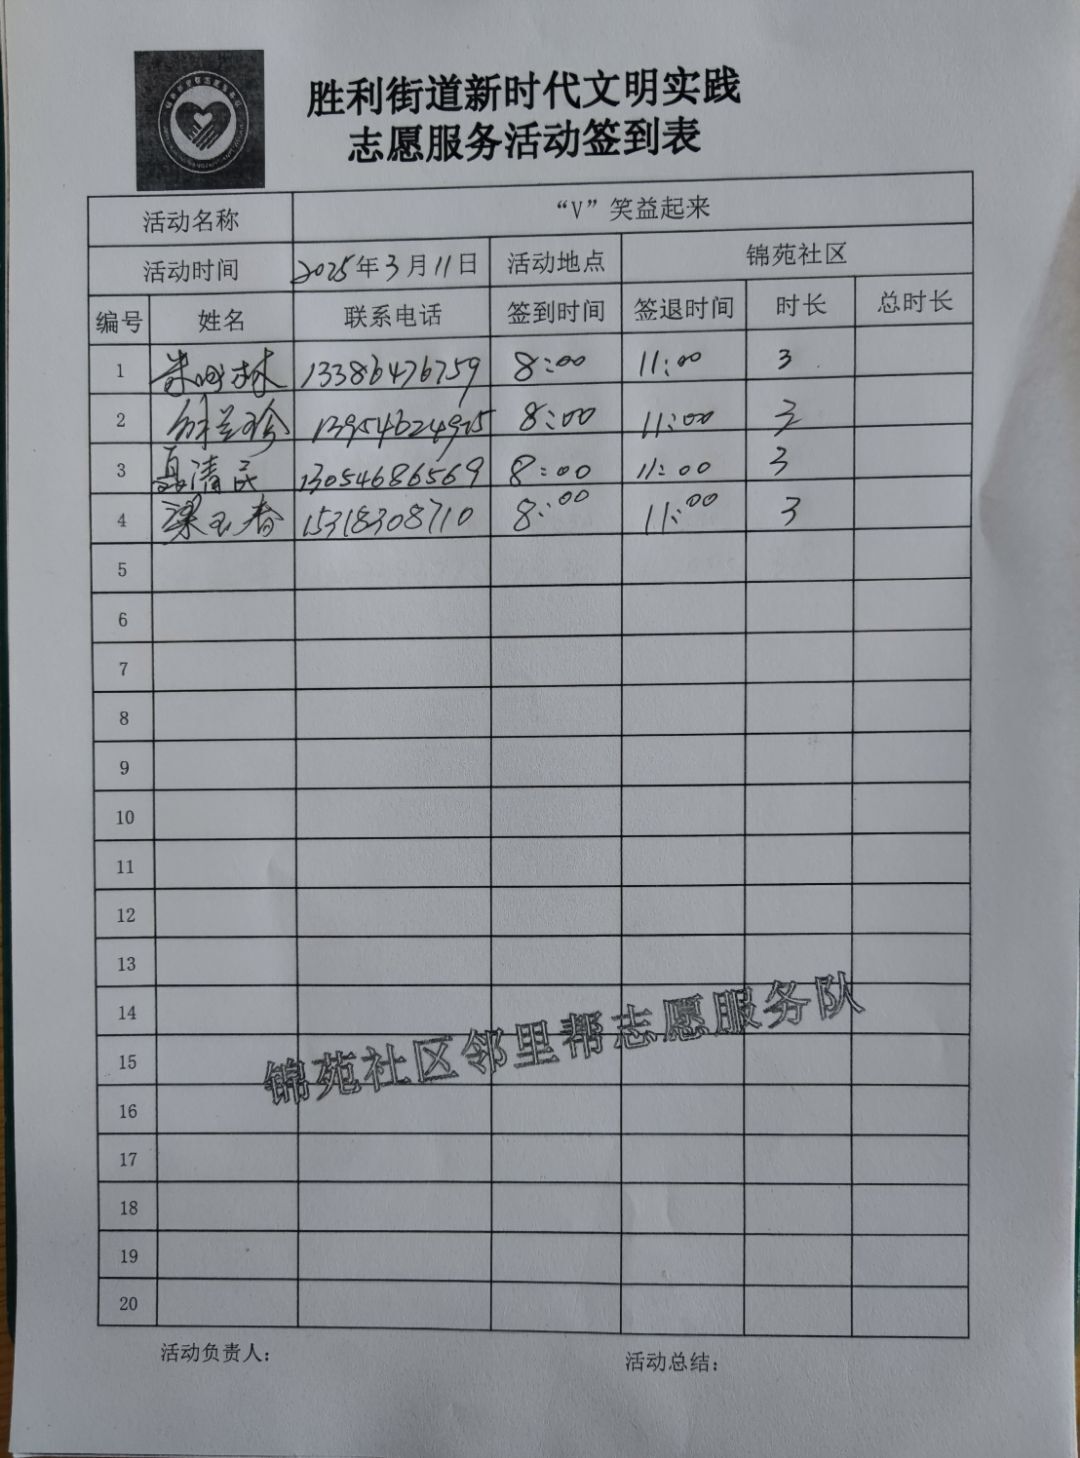 胜利街道新时代文明实践
志愿服务活动签到表
活动名称 “V”笑益起来
活动时间 2025年3月11日 活动地点 锦苑社区
编号 姓名 联系电话 签到时间 签退时间 时长 总时长
1 林 13386476759 8:00 11:00 3
2 兰珍 13954624975 8:00 11:00 3
3 聂清民 13054686569 8:00 11:00 3
4 梁玉春 15318308710 8:00 11:00 3
5
6
7
8
9
10
11
12
13
14
15
16
17
18
19
20
锦苑社区邻里帮志愿服务队
活动负责人: 活动总结: